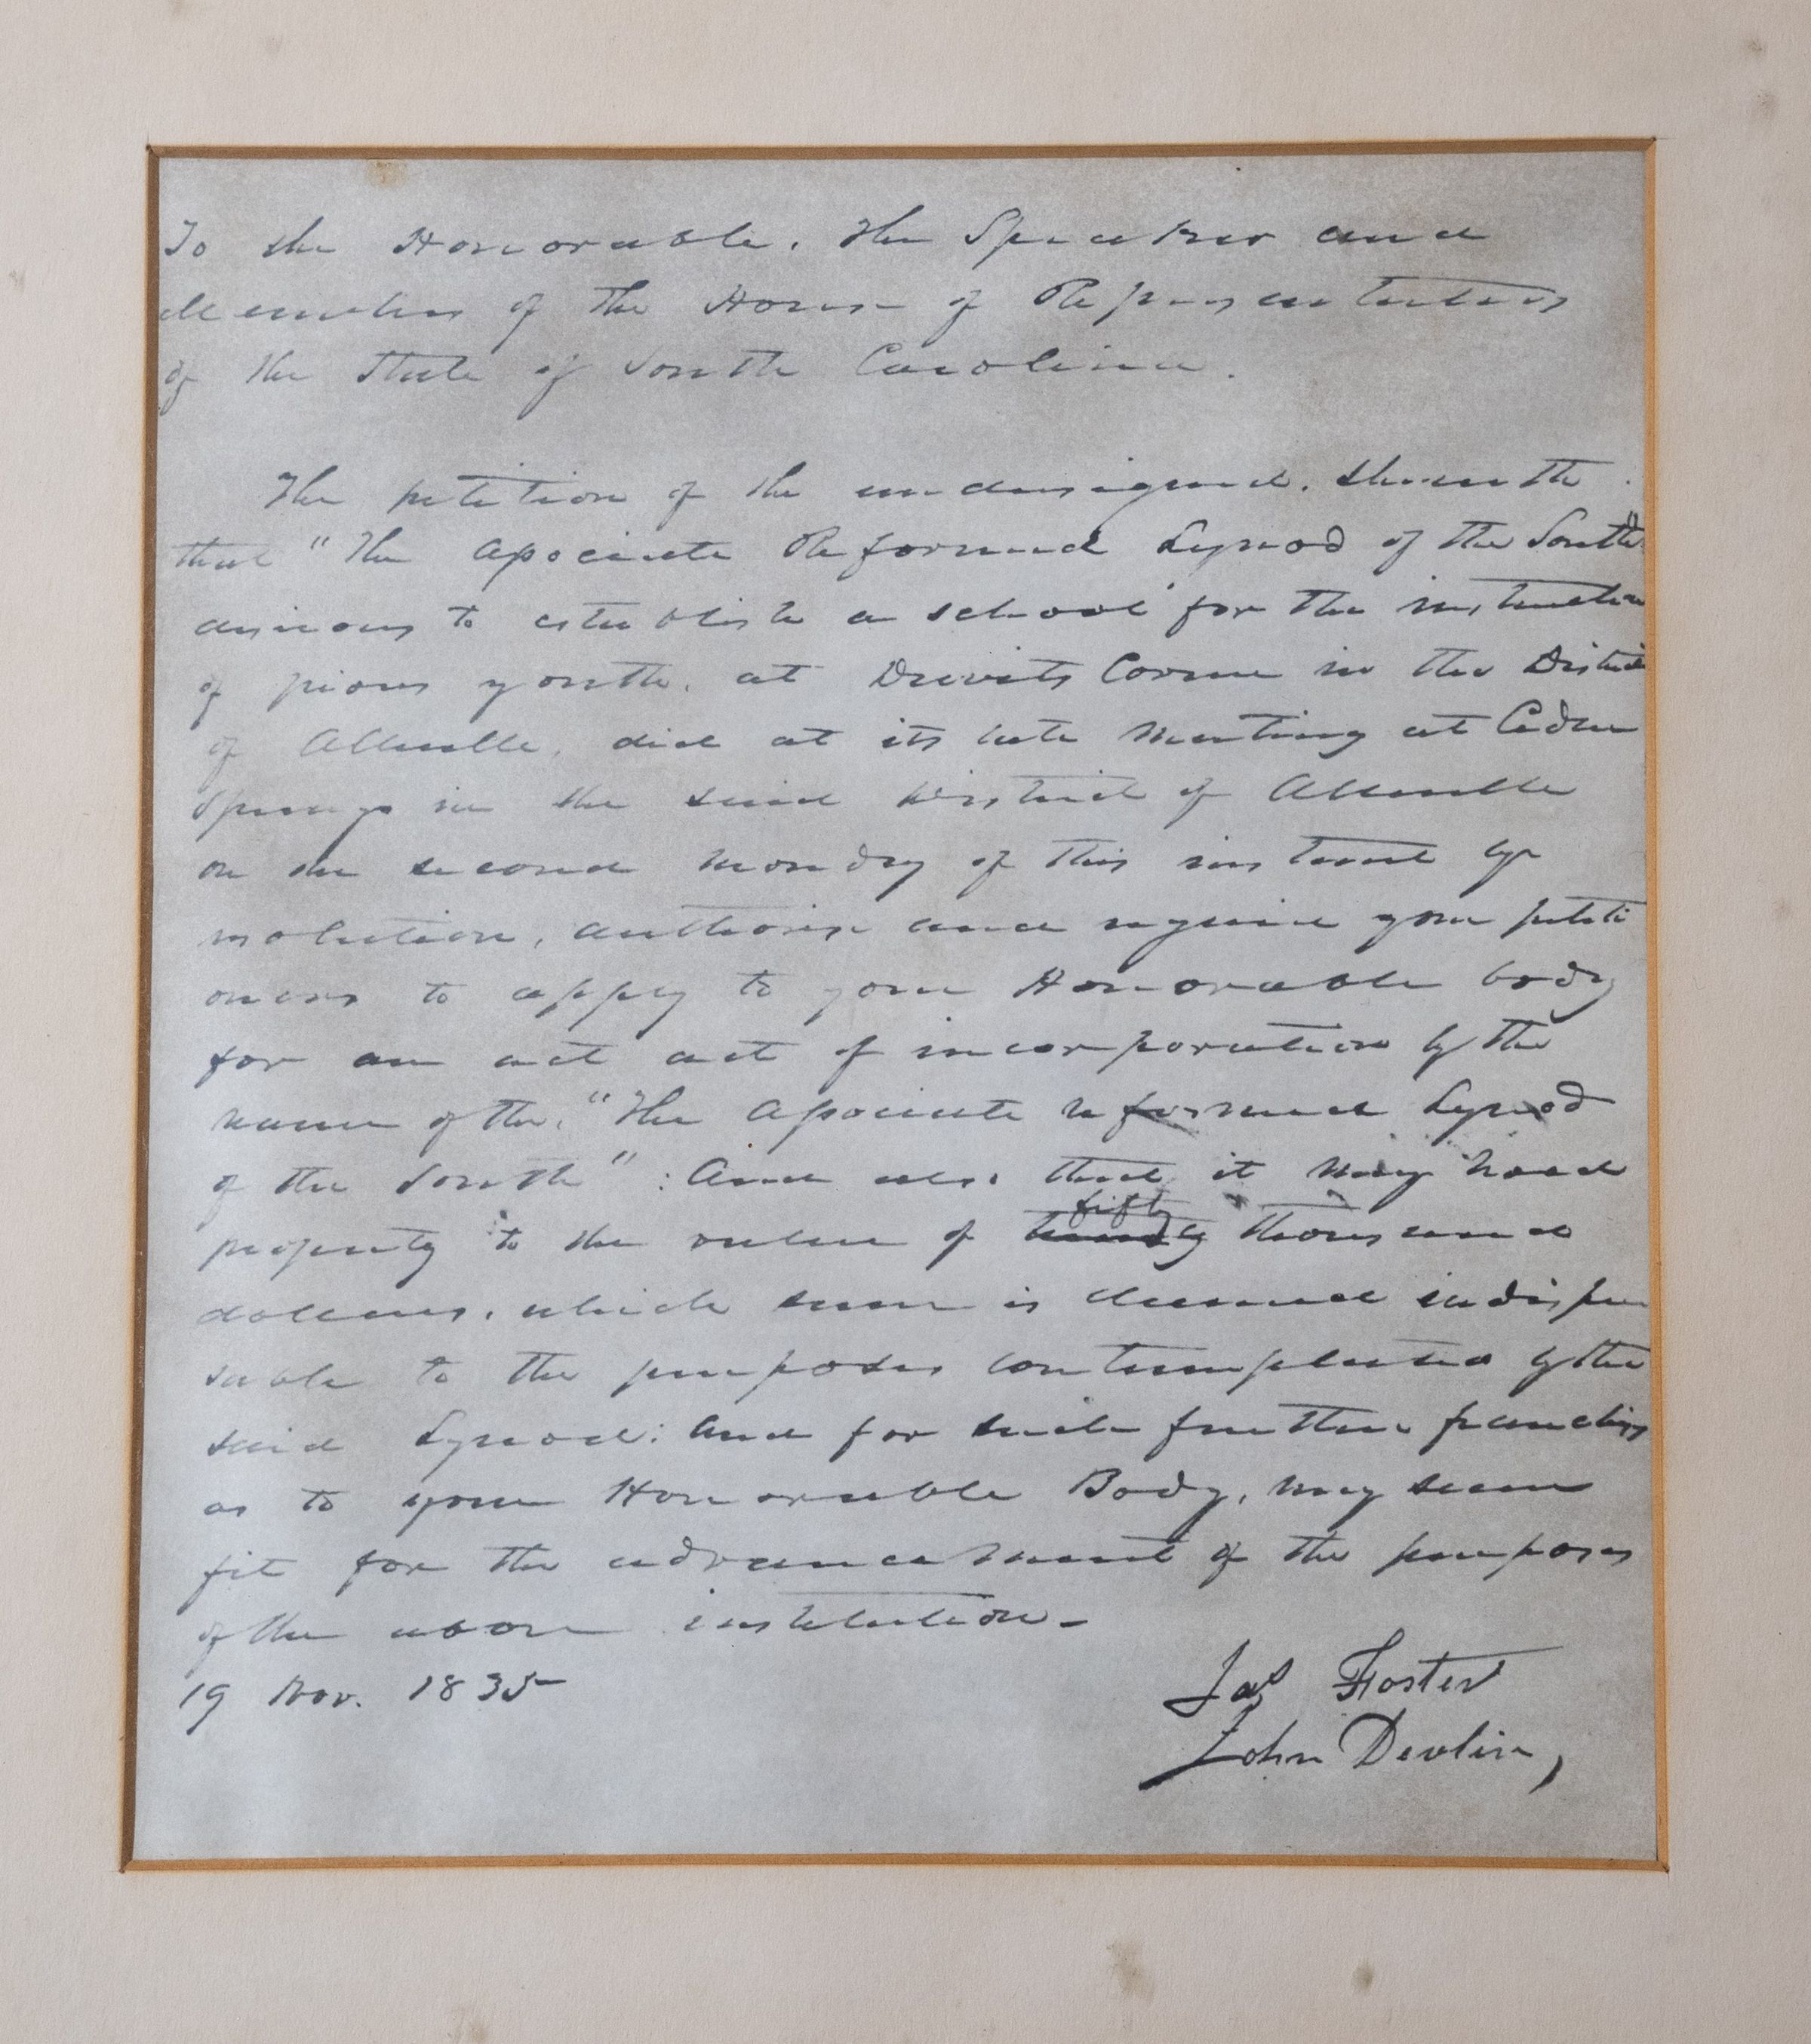 To the Honorable, the Speaker and
Members of the House of Representatives
of the State of South Carolina.
The petition of the undersigned, sheweth
that "The Associate Reformed Synod of the South"
desirous to establish a school for the instruction
of pious youth, at Dewits Corner in the District
of Abbeville, did at its late meeting at Cedar
Springs in the said District of Abbeville
on the second Monday of this instant by
resolution, authorise and require your petiti
oners to apply to your Honorable body
for an act act of incorporation by the
name of the, "The Associate reformed Synod
of the South": And also that it may hold
property to the value of twenty fifty thousand
dollars, which sum is deemed indispen
sable to the purposes contemplated by the
said Synod: and for such further franchises
as to your Honorable Body, may seem
fit for the advancement of the purposes
of the above institution-
19 Nov. 1835
Jas Foster
John Devlin,